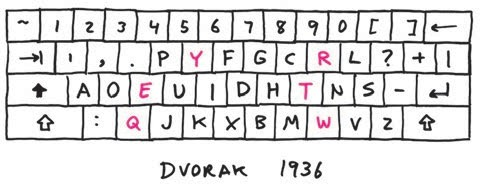 ~ 1 2 3 4 5 6 7 8 9 0 [ ] ←
→| ' , . P Y F G C R L ? + |
↑ A O E U I D H T N S - ↵
⇧ : Q J K X B M W V Z ⇧
DVORAK 1936